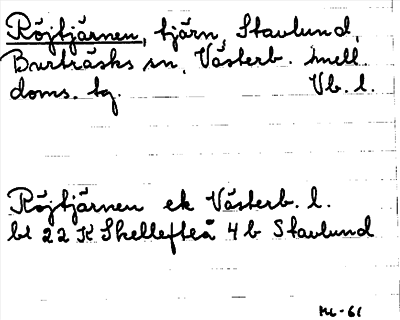 Röjtjärnen, tjärn, Stavlund,
Burträsks sn, Västerb. mell.
doms. tg. Vb. l.
Röjtjärnen ek Västerb. l.
bl 22 K Skellefteå 4 b Stavlund
-61